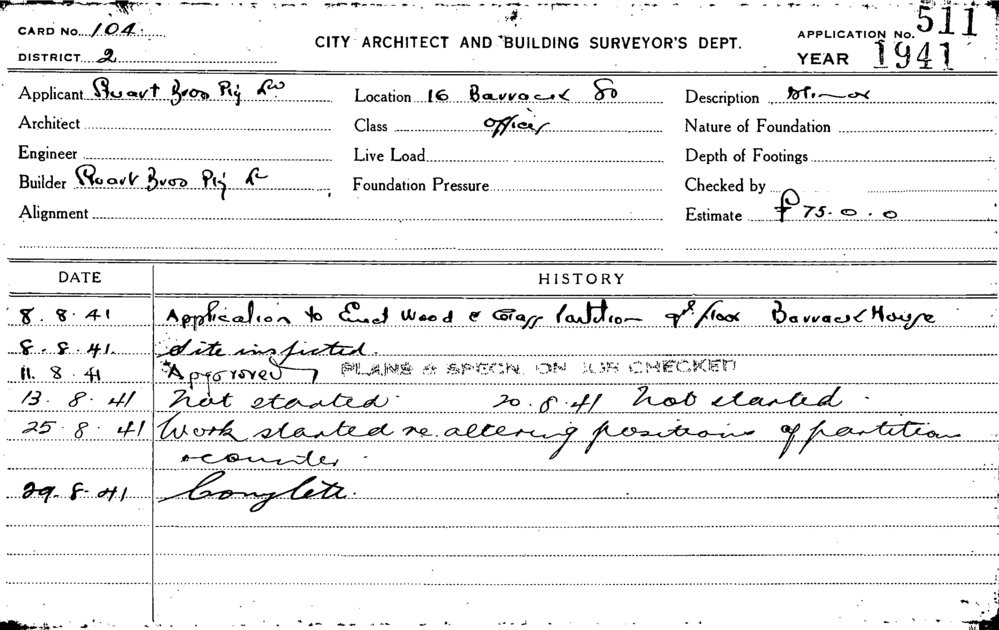 CARD No. 104
APPLICATION No. 511
CITY ARCHITECT AND BUILDING SURVEYOR'S DEPT.
DISTRICT 2
YEAR 1941
Applicant Stuart Bros Pty Ld
Location 16 Barrack St
Description Minor
Architect
Class Offices
Nature of Foundation
Engineer
Live Load
Depth of Footings
Builder Stuart Bros Pty Ld
Foundation Pressure
Checked by
Alignment
Estimate £75.0.0
DATE HISTORY
8.8.41 Application to Erect Wood & Glass Partition floor Barrack House
8.8.41. Site inspected.
11.8.41 Approved PLANS & SPECN. ON JOB CHECKED
13.8.41 Not started 20.8.41 Not started.
25.8.41 Work started re altering positions of partition
& counter.
29.8.41 Complete.